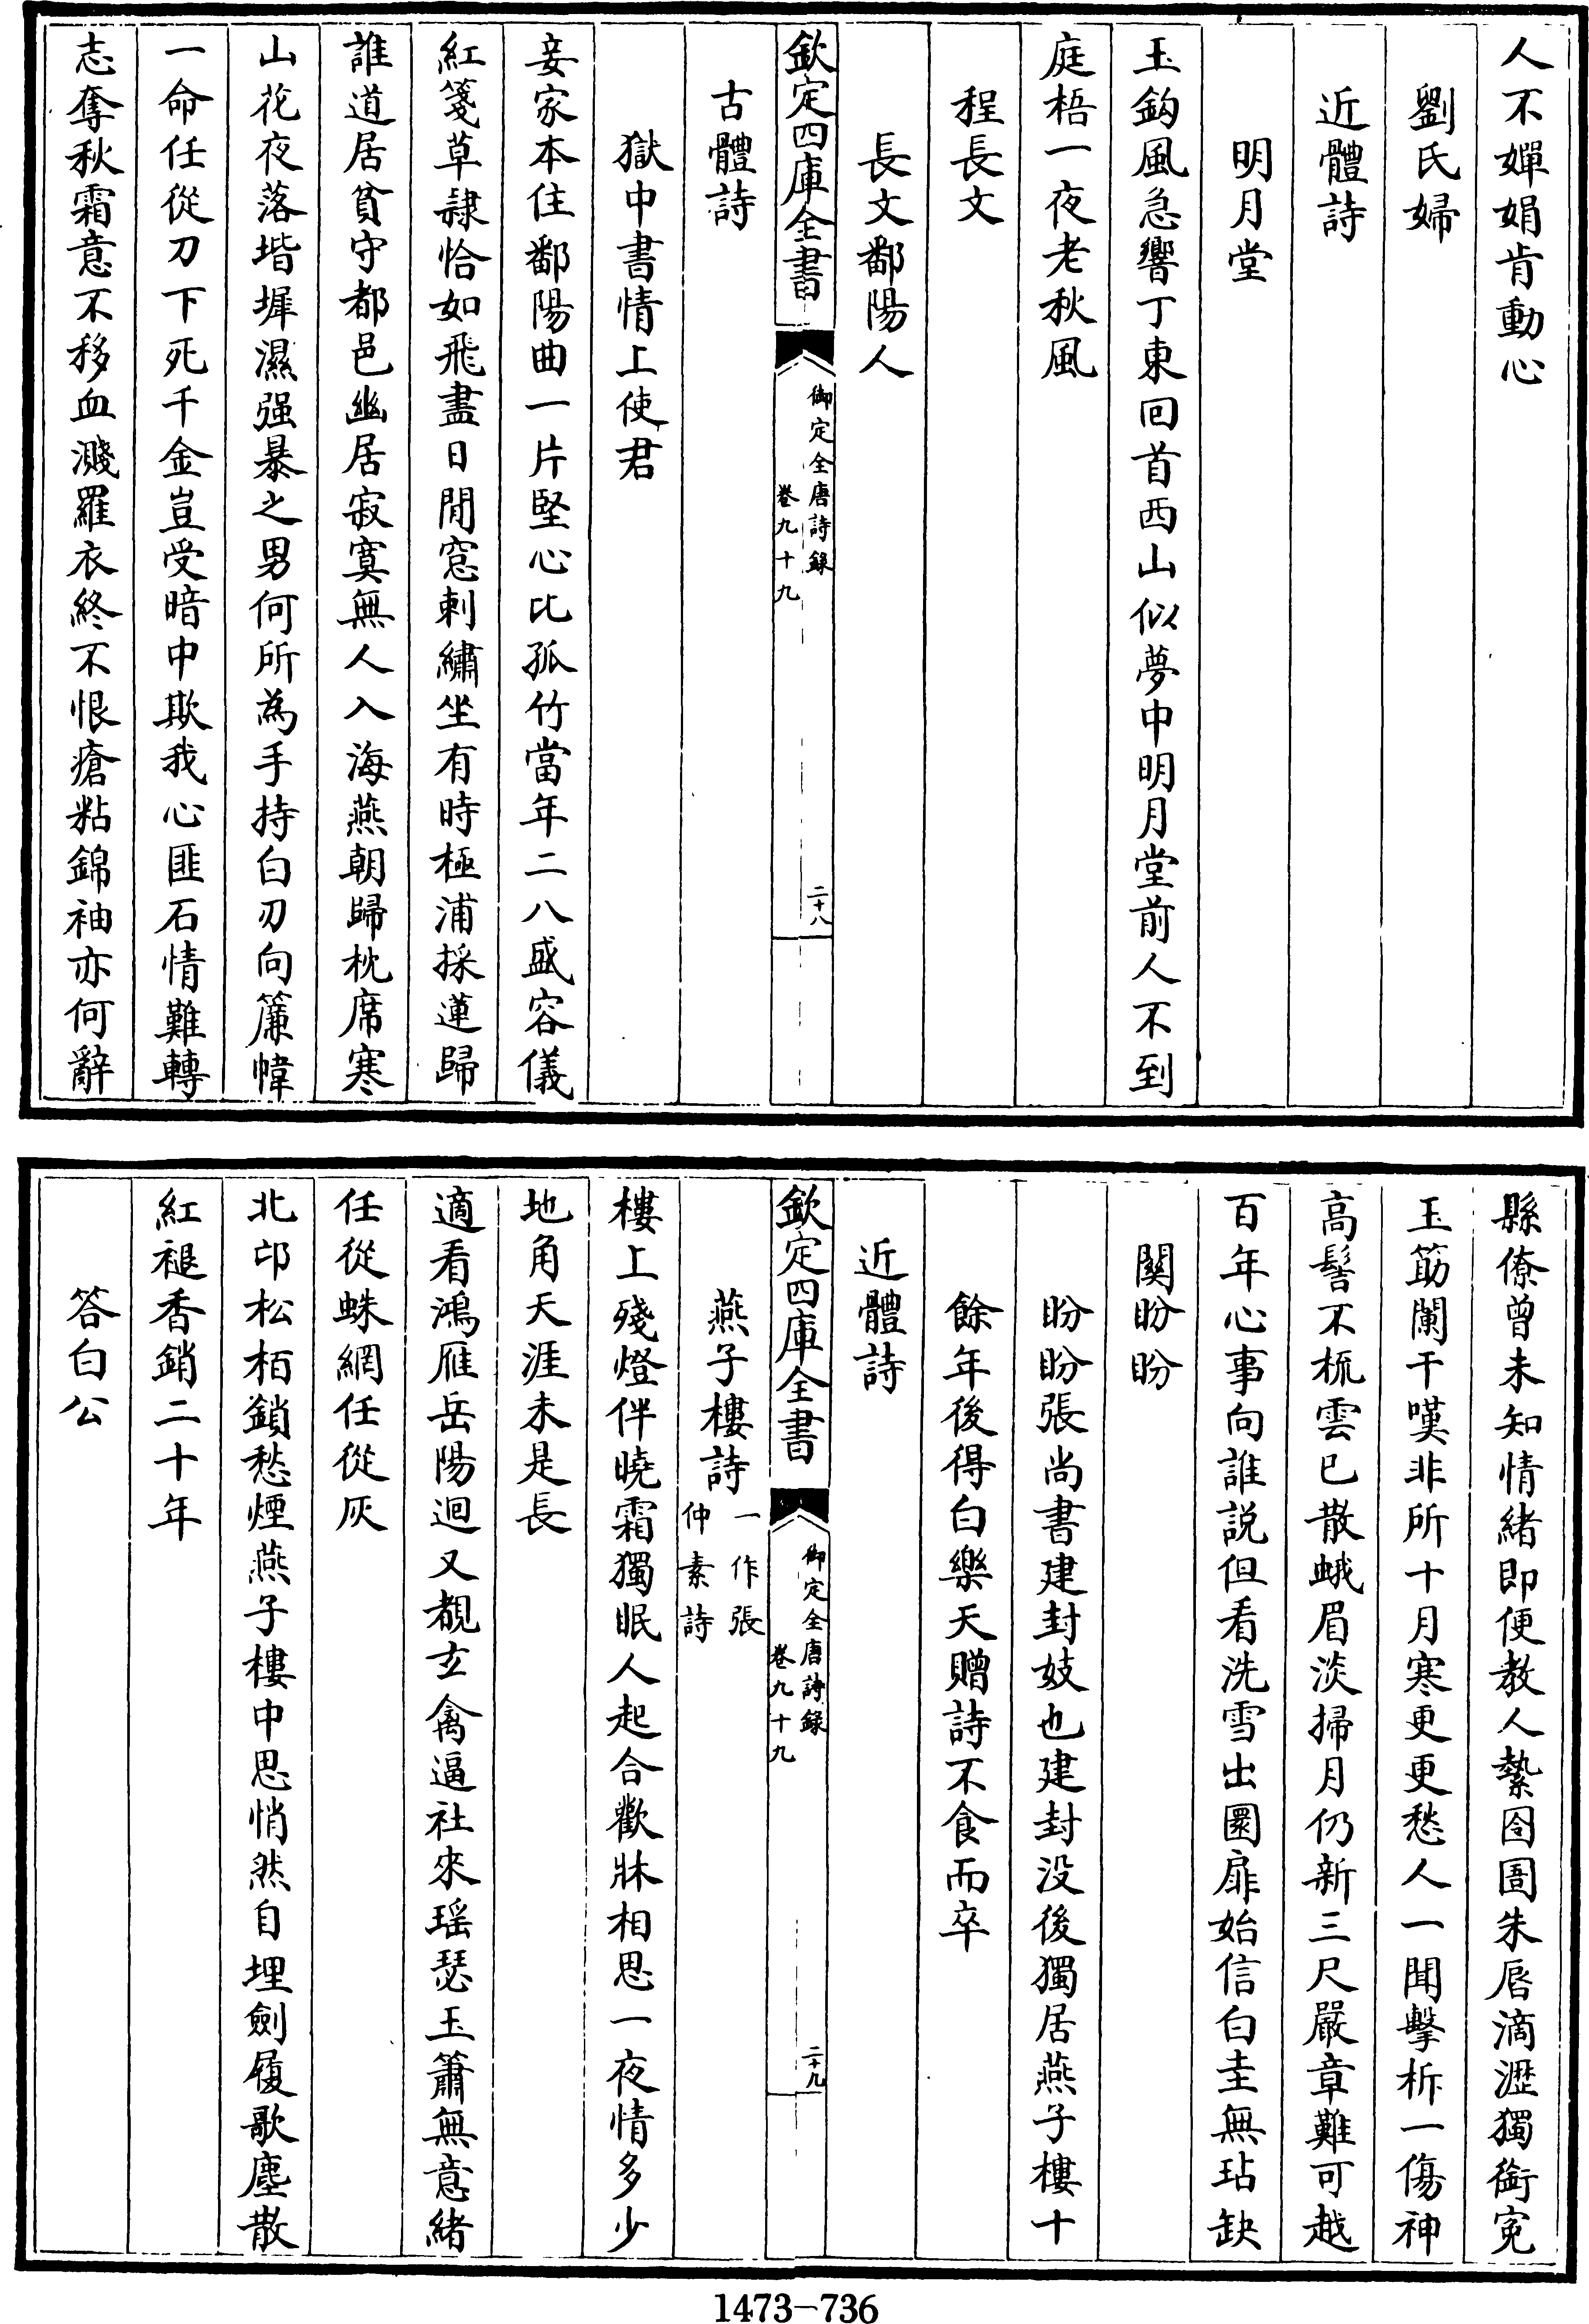 人不嬋娟肯動心
劉氏婦
近體詩
明月堂
玉鈎風急響丁東回首西山似夢中明月堂前人不到
庭梧一夜老秋風
程長文
長文鄱陽人
欽定四庫全書
御定全唐詩錄
卷九十九
二十八
古體詩
獄中書情上使君
妾家本住鄱陽曲一片堅心比孤竹當年二八盛容儀
紅箋草隷恰如飛盡日閒窓刺繡坐有時極浦採蓮歸
誰道居貧守都邑幽居寂寞無人入海燕朝歸枕席寒
山花夜落堦墀濕强暴之男何所為手持白刃向簾幃
一命任從刀下死千金豈受暗中欺我心匪石情難轉
志奪秋霜意不移血濺羅衣終不恨瘡粘錦袖亦何辭
縣僚曾未知情緒即便教人縶囹圄朱唇滴瀝獨銜寃
玉筯闌干嘆非所十月寒更更愁人一聞擊柝一傷神
高髻不梳雲已散蛾眉淡掃月仍新三尺嚴章難可越
百年心事向誰説但看洗雪出圜扉始信白圭無玷缺
關盼盼
盼盼張尚書建封妓也建封没後獨居燕子樓十
餘年後得白樂天贈詩不食而卒
近體詩
欽定四庫全書
御定全唐詩錄
卷九十九
二十九
燕子樓詩 一作張仲素詩
樓上殘燈伴曉霜獨眠人起合歡牀相思一夜情多少
地角天涯未是長
適看鴻雁岳陽迴又覩玄禽逼社來瑶瑟玉簫無意緒
任從蛛網任從灰
北邙松栢鎖愁煙燕子樓中思悄然自埋劍履歌塵散
紅褪香銷二十年
答白公
1473-736